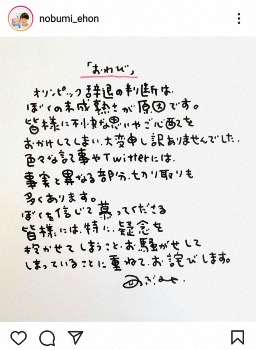 nobumi_ehon
「おわび」
オリンピック辞退の判断は、
ぼくの未成熟さが原因です。
皆様に不快な思いやご心配を
おかけしてしまい、大変申し訳ありませんでした。
色々な記事やTwitterには、
事実と異なる部分、切り取りも
多くあります。
ぼくを信じて慕ってくださる
皆様には、特に、疑念を
抱かせてしまうこと、お騒がせして
しまっていることに重ねて、お詫びします。
のぶみ.